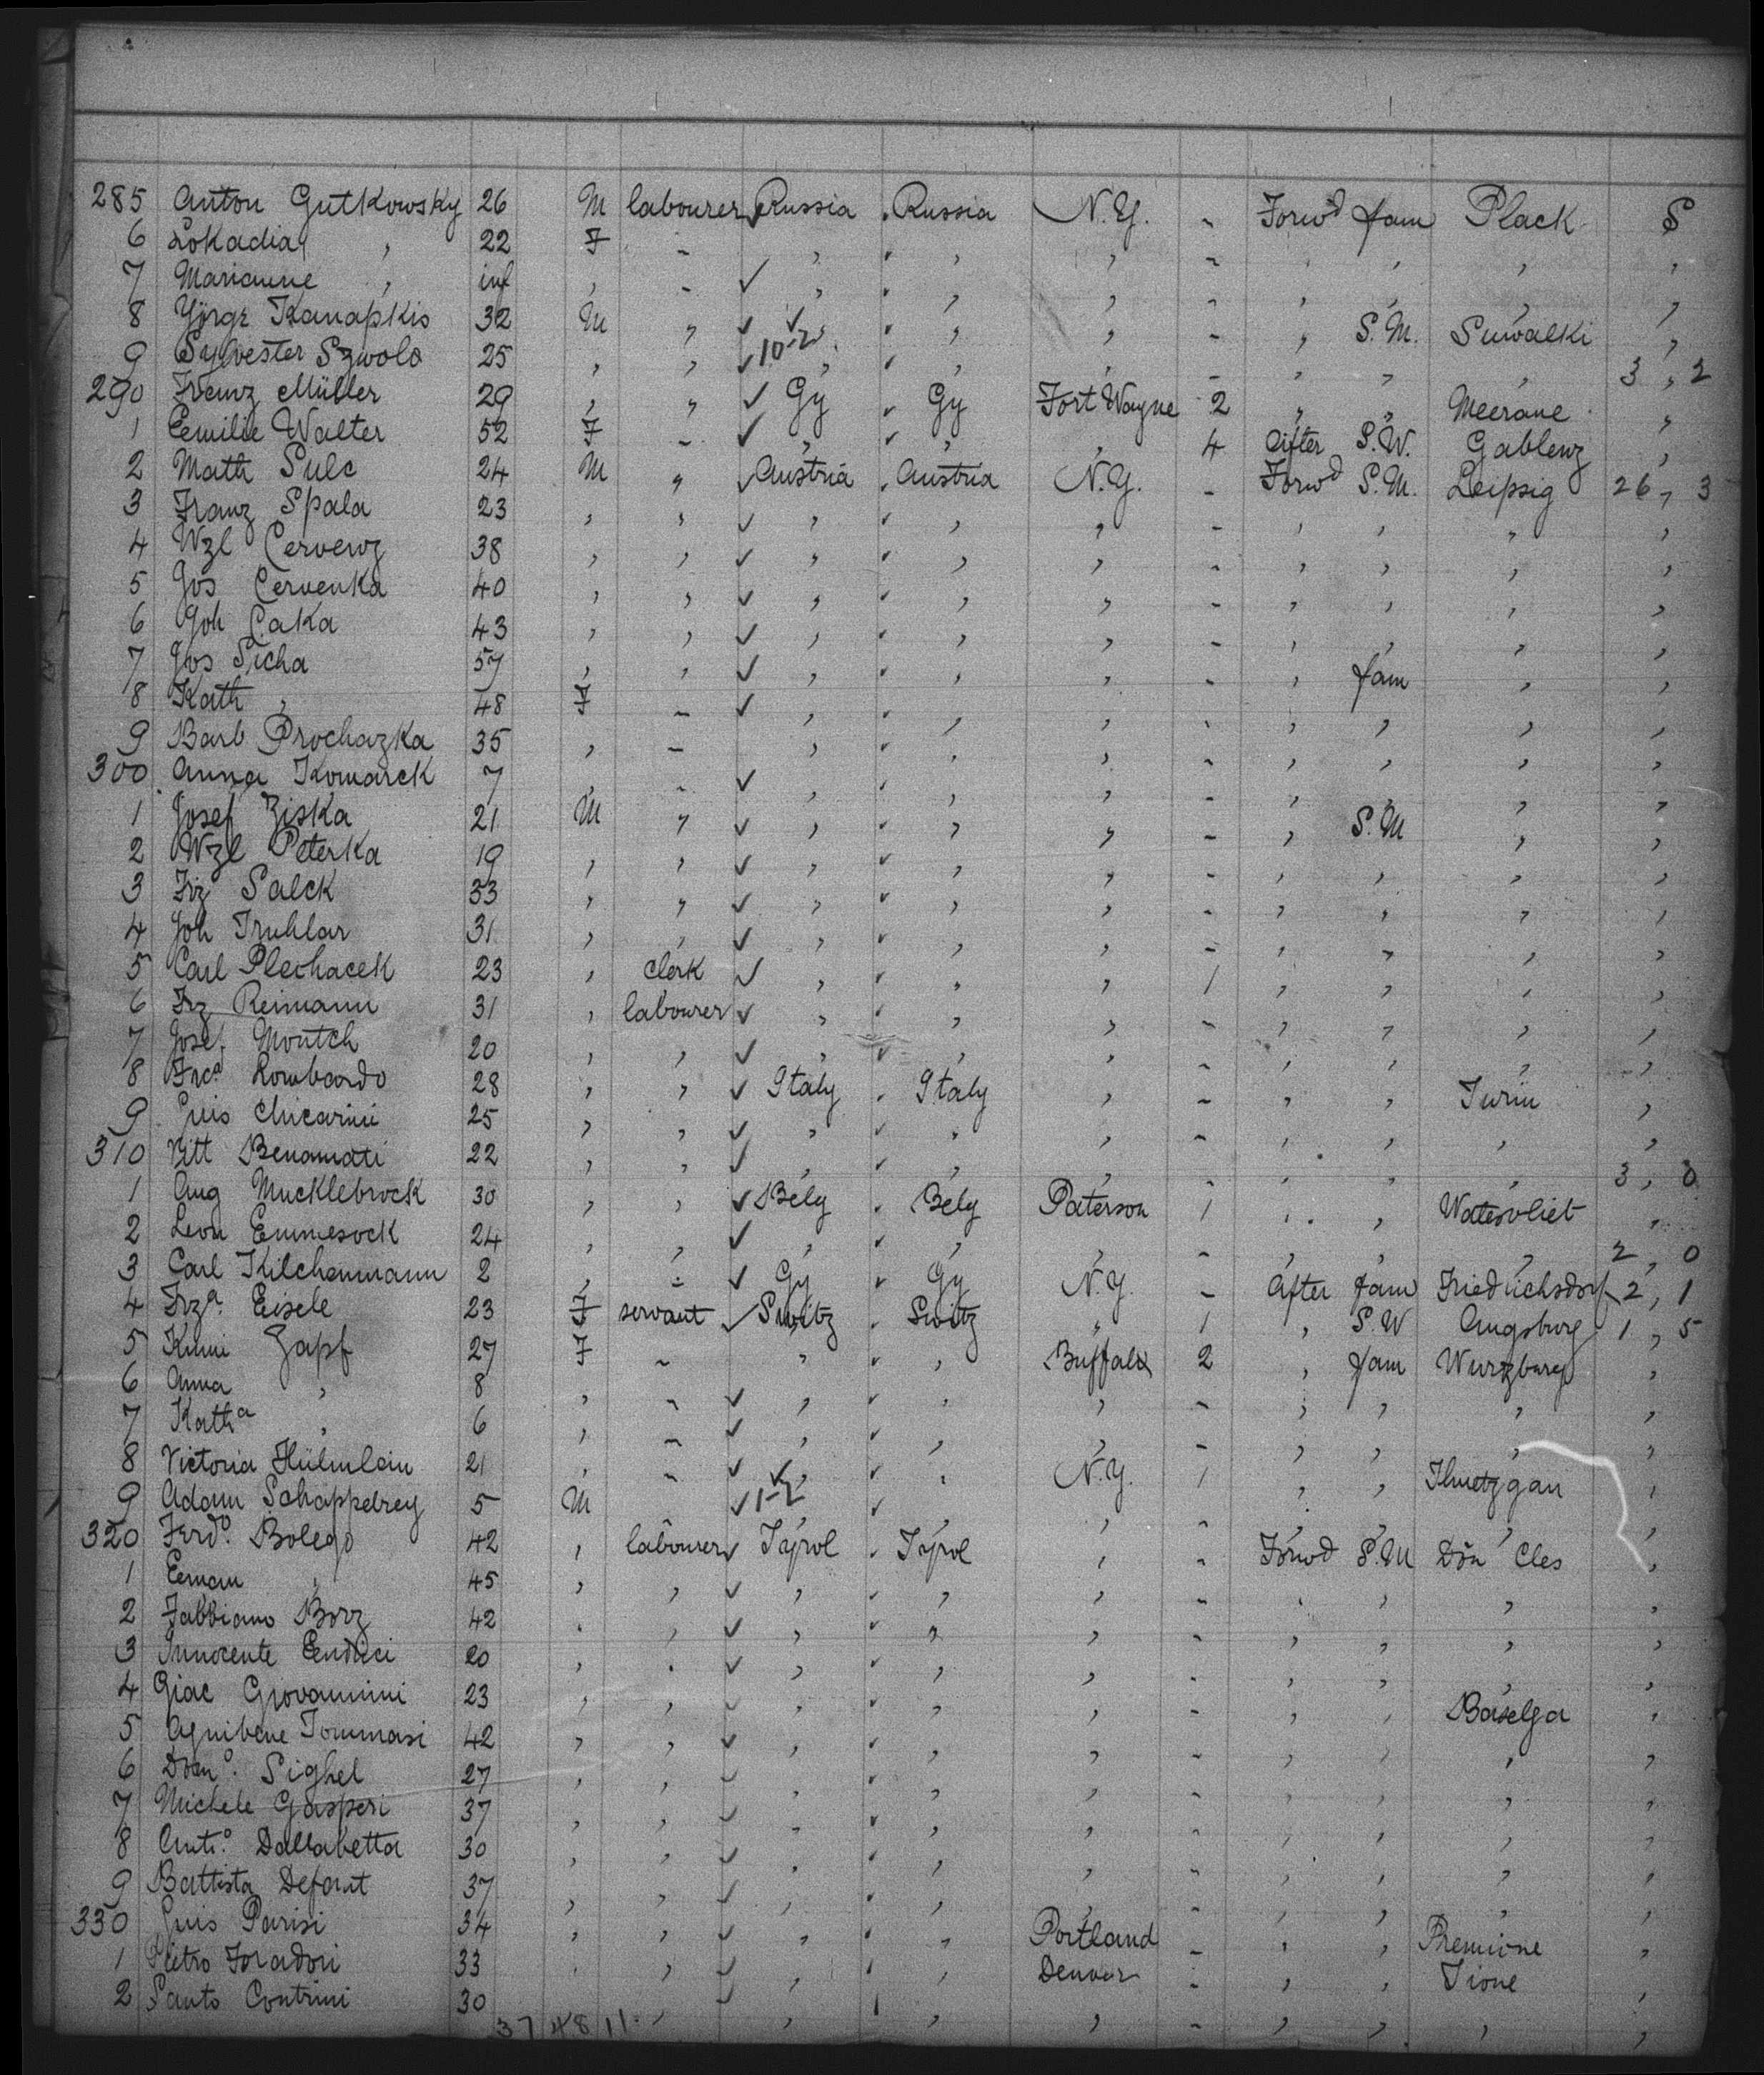 285 Anton Gutkowsky 26 M labourer ✓ Russia . Russia N.Y. - Forwd fam Plack $
6 Lokadia , 22 F - , , , - , , , ,
7 Marianne , inf , - ✓ , , , - , , , ,
8 Yörgr Kanapkis 32 M , ✓ ✓ , , - , S.M. Suwalki ,
9 Sylvester Szwolo 25 , , ✓ 10-2 , , , - , , , 3 , 2
290 Franz Müller 29 , , ✓ Gy Gy Fort Wayne 2 , , Meerane ,
1 Eemilie Walter 52 F - ✓ , , , 4 After S.W. Gablenz ,
2 Math Sulc 24 M , ✓ Austria . Austria N.Y. - Forwd S.M. Leipsig 26 , 3
3 Franz Spala 23 , , ✓ , , , - , , , ,
4 Wzl Cervenz 38 , , ✓ , , , - , , , ,
5 Jos Cervenka 40 , , ✓ , , , - , , , ,
6 Joh Caka 43 , , ✓ , , , - , , , ,
7 Jos Sicha 57 , , ✓ , , , - , fam , ,
8 Kath , 48 F - ✓ , , , - , , , ,
9 Barb Prochazka 35 , - , , , - , , , ,
300 Anna Komarek 7 , - ✓ , , , - , , , ,
1 Josef Ziska 21 M , ✓ , , , - , S.M , ,
2 Wzl Peterka 19 , , ✓ , , , - , , , ,
3 Frz Salek 33 , , ✓ , , , - , , , ,
4 Joh Truhlar 31 , , ✓ , , , - , , , ,
5 Carl Plechacek 23 , clerk ✓ , , , 1 , , , ,
6 Frz Reimann 31 , labourer ✓ , , , - , , , ,
7 Josef Moutch 20 , , ✓ , , , - , , , ,
8 Frca Lombardo 28 , , ✓ Italy . Italy , - , , Turin ,
9 Luis Chicarini 25 , , ✓ , , , - , , , ,
310 Vitt Benamati 22 , , ✓ , , , - , , , 3 , 0
1 Aug Mucklebrock 30 , , ✓ Belg . Belg Paterson 1 , , Watervliet ,
2 Leon Emmesock 24 , , ✓ , , , - , , , 2 , 0
3 Carl Kilchenmann 2 , - ✓ Gy Gy N.Y. - After fam Friedrichsdorf 2 , 1
4 Frza. Eisele 23 F servant ✓ Switz . Switz , 1 , S.W Augsburg 1 , 5
5 Kuni Zapf 27 F - , , Buffalo 2 , fam Wurzburg ,
6 Anna , 8 , - ✓ , , , - , , , ,
7 Katha , 6 , - ✓ , , , - , , , ,
8 Victoria Hülmlein 21 , - ✓ ✓ , , N.Y. 1 , , ,
9 Adam Schappelrey 5 M ✓ 1-2 , , , - , , , ,
320 Ferdo. Bolego 42 , labourer ✓ Tyrol . Tyrol , - Forwd S.M Don Cles ,
1 Eeman , 45 , , ✓ , , , - , , , ,
2 Fabbiano Borz 42 , , ✓ , , , - , , , ,
3 Innocente Endrici 20 , , ✓ , , , - , , , ,
4 Giac Giovannini 23 , , ✓ , , , - , , Baselga ,
5 Agnibene Tommasi 42 , , ✓ , , , - , , , ,
6 Domo. Sighel 27 , , ✓ , , , - , , , ,
7 Michele Gasperi 37 , , ✓ , , , - , , , ,
8 Anto. Dallabetta 30 , , ✓ , , , - , , , ,
9 Battista Defant 37 , , ✓ , , , - , , , ,
330 Luis Parisi 34 , , ✓ , , Portland - , , Premione ,
1 Pietro Foradori 33 , , ✓ , , Denver - , , Tione ,
2 Santo Contrini 30 , , ✓ , , , - , , , ,
37 48 11.